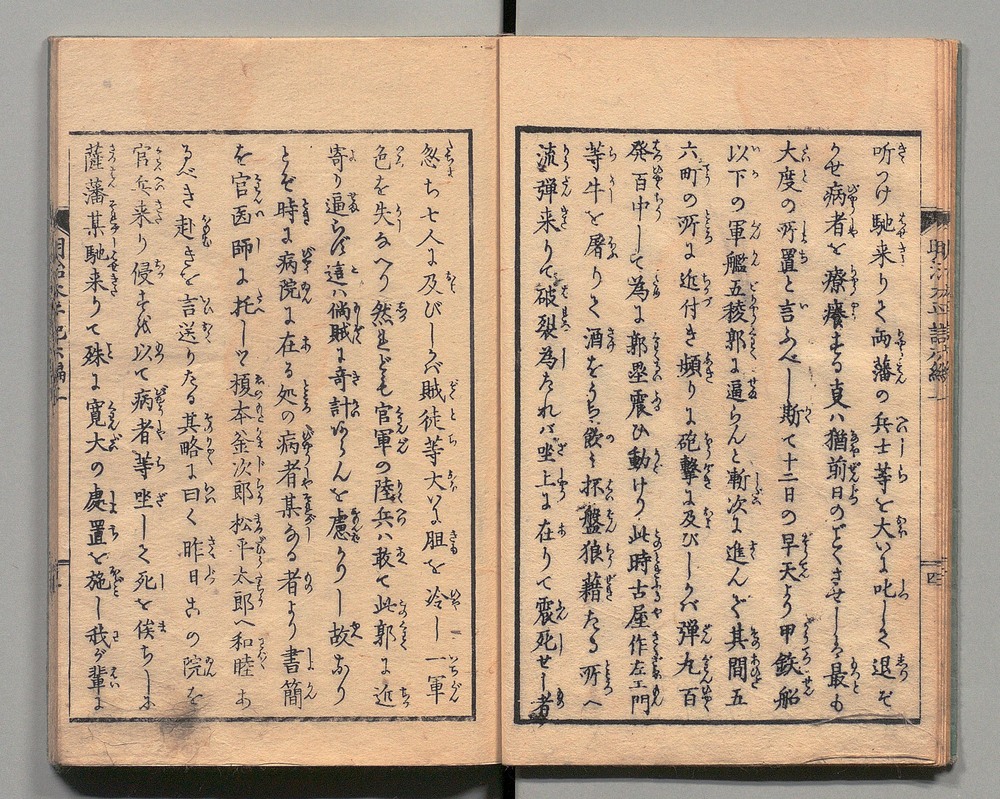 听つけ馳来りて両藩の兵士等を大いに叱して退ぞ
かせ病者を療養する㕝ハ猶前日のごとくさせしる最も
大度の所置と言ふべし斯て十二日の早天より甲鉄船
以下の軍艦五稜郭に逼らんと漸次に進んで其間五
六町の所に近付き頻りに砲撃に及びしかバ弾丸百
発百中して為に郭塁震ひ動けり此時古屋作左エ門
等牛を屠りて酒をうち飲ミ杯盤狼藉たる所へ
流弾来りて破裂為たれバ坐上に在りて震死せし者
忽ち七人に及びしかバ賊徒等大いに胆を冷し一軍
色を失なへり然れども官軍の陸兵ハ敢て此郭に近
寄り逼らず這ハ倘賊に奇計あらんを慮かりし故なり
とぞ時に病院に在る処の病者某なる者より書簡
を官医師に托して榎本釜次郎松平太郎へ和睦あ
るべき赴きを言送りたる其略に曰く昨日この院を
官兵来り侵すを以て病者等坐して死を俟ちしに
薩藩某馳来りて殊に寛大の処置を施し我が輩に
明治太平記六編十
四